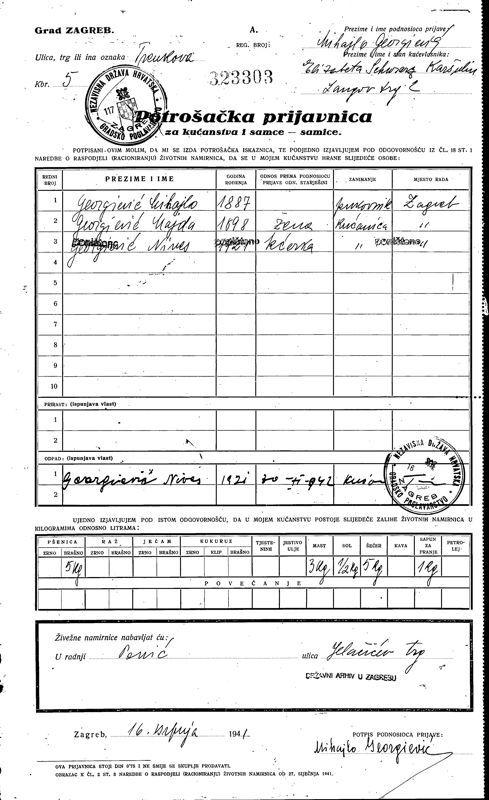 Grad ZAGREB.
A.
REG. BROJ:
323303
Prezime i ime podnosioca prijave:
Mihajlo Georgijević
Ulica, trg ili ina oznaka Trenkova
Prezime i ime i stan kućevlasnika:
Elizabeta
Kbr. 5
NEZAVISNA DRŽAVA HRVATSKA
GRADSKO POGLAVARSTVO
ZAGREB
117
Potrošačka prijavnica
za kućanstva i samce – samice.
POTPISANI OVIM MOLIM, DA MI SE IZDA POTROŠAČKA ISKAZNICA, TE PODJEDNO IZJAVLJUJEM POD ODGOVORNOŠĆU IZ ČL. 18 ST. 1
NAREDBE O RASPODJELI (RACIONIRANJU) ŽIVOTNIH NAMIRNICA, DA SE U MOJEM KUĆANSTVU HRANE SLIJEDEĆE OSOBE:
REDNI BROJ PREZIME I IME GODINA ROĐENJA ODNOS PREMA PODNOSIOCU PRIJAVE ODN. STARJEŠINI ZANIMANJE MJESTO RADA
1 Georgijević Mihajlo 1887 Zagreb
2 Georgijević Majda 1898 žena kućanica "
3 Georgijević Nives 1921 kćerka " "
poništeno poništeno poništeno
4
5
6
7
8
9
10
PRIRAST: (ispunjava vlast)
1
2
ODPAD: (ispunjava vlast)
1 Georgijević Nives 1921
2
NEZAVISNA DRŽAVA HRVATSKA
GRADSKO POGLAVARSTVO
ZAGREB
UJEDNO IZJAVLJUJEM POD ISTOM ODGOVORNOŠĆU, DA U MOJEM KUĆANSTVU POSTOJE SLIJEDEĆE ZALIHE ŽIVOTNIH NAMIRNICA U
KILOGRAMIMA ODNOSNO LITRAMA:
PŠENICA RAŽ JEČAM KUKURUZ TJESTENINE JESTIVO ULJE MAST SOL ŠEĆER KAVA SAPUN ZA PRANJE PETROLEJ
ZRNO BRAŠNO ZRNO BRAŠNO ZRNO BRAŠNO ZRNO KLIP BRAŠNO
5 Kg 3 Kg 1/2 Kg 5 Kg 1 Kg
POVEĆANJE
Živežne namirnice nabavljat ću:
U radnji Penić ulica Jelačićev trg
DRŽAVNI ARHIV U ZAGREBU
Zagreb, 16. srpnja 194
POTPIS PODNOSIOCA PRIJAVE:
Mihajlo Georgijević
OVA PRIJAVNICA STOJI DIN 0'75 I NE SMIJE SE SKUPLJE PRODAVATI.
OBRAZAC K ČL. 2 ST. 3 NAREDBE O RASPODJELI (RACIONIRANJU) ŽIVOTNIH NAMIRNICA OD 27. SIJEČNJA 1941.